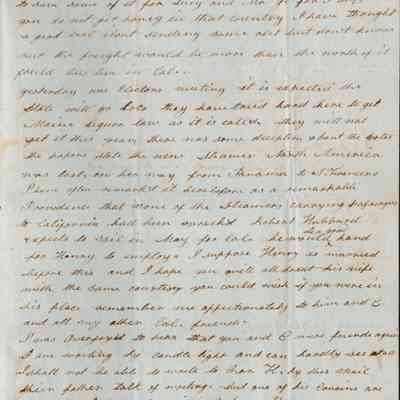 to turn some of it for Lucy and
you do not get honey in that country I have thought
a good deal about sending some out but don't know
but the freight would be more than the worth of it
could buy him in Cal.
yesterday was Elections meeting it is expected the
State will go Loco they have tried hard here to get
Maine liquor law as it is called they will not
get it this year, there was some deception about the votes
the papers state the new Steamer North America
was lost on her way from Panama to S. Francisco
I have often remarked it
Providence that none of the Steamers carrying passengers
to California had been wrecked Robert Hubbard
expects to sail in May for Cala he would be a good hand
for Henry to employ I suppose Henry is married
before this and I hope you will all treat his wife
with the same courtesy you could wish if you were in
his place remember me affectionately to him and C
and all my other Cal. friends
I was overjoyed to hear that you and C were friends again
I am working by candle light and can hardly see at all
I shall not be able to write to Ann H. by this Mail
their father talk of writing but one of his cousins are